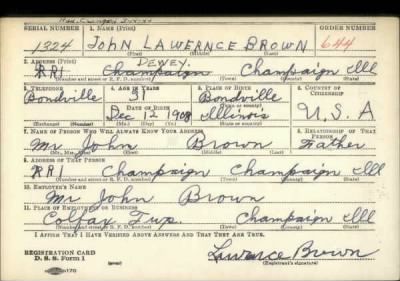 SERIAL NUMBER 1. NAME (Print) ORDER NUMBER
1324 JOHN LAWERNCE BROWN 644
DEWEY.
2. ADDRESS (Print)
RR1 Champaign Champaign Ill
(Number and street or R. F. D. number) (Town) (County) (State)
3. TELEPHONE 4. AGE IN YEARS 5. PLACE OF BIRTH 6. COUNTRY OF CITIZENSHIP
Bondville 31 Bondville
DATE OF BIRTH (Town or county)
Dec 12 1908 Illinois U.S.A
(Exchange) (Number) (Mo.) (Day) (Yr.) (State or country)
7. NAME OF PERSON WHO WILL ALWAYS KNOW YOUR ADDRESS 8. RELATIONSHIP OF THAT PERSON
Mr John Brown Father
9. ADDRESS OF THAT PERSON
RR1 Champaign Champaign Ill
(Number and street or R. F. D. number) (Town) (County) (State)
10. EMPLOYER'S NAME
Mr John Brown
11. PLACE OF EMPLOYMENT OR BUSINESS
Colfax Twp. Champaign Ill
(Number and street or R. F. D. number) (Town) (County) (State)
I AFFIRM THAT I HAVE VERIFIED ABOVE ANSWERS AND THAT THEY ARE TRUE.
REGISTRATION CARD
D. S. S. Form 1 Lawrence Brown
(Registrant's signature)